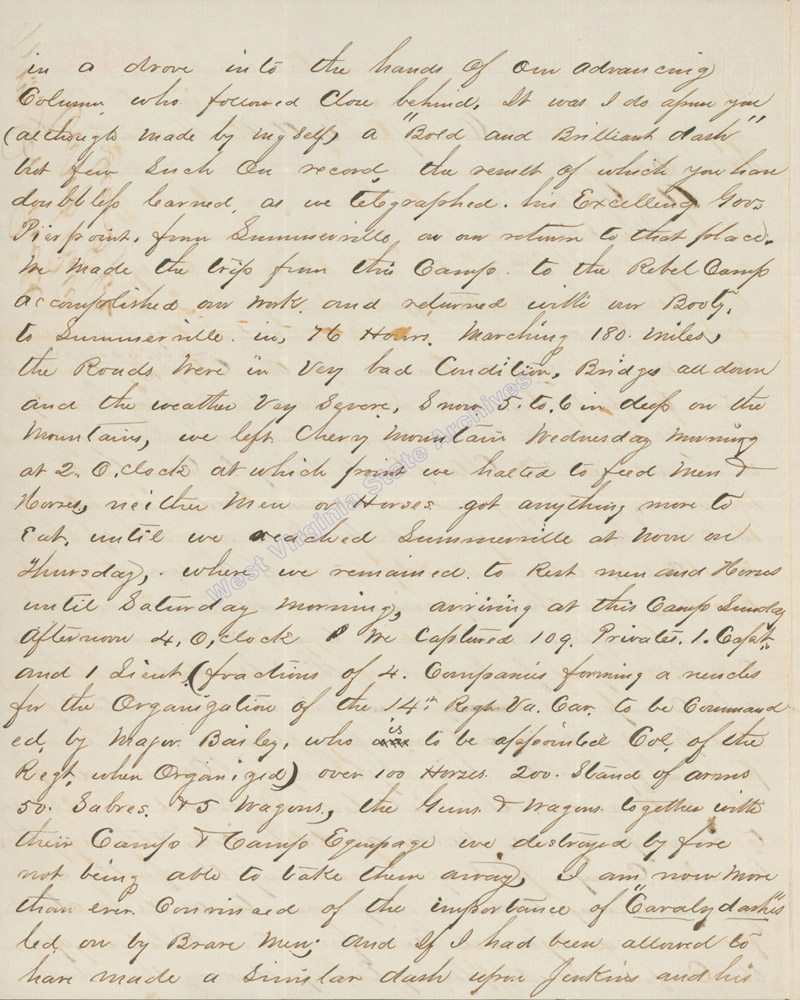 in a drove into the hands of our advancing
Column who followed Close behind. It was I do assure you
(although made by myself) a "Bold and Brilliant dash"
but few Such On record, the result of which you have
doubbless learned, as we telegraphed. his Excellency Gov.
Pierpoint. from Summerville, on our return to that place.
We Made the trip from this Camp. to the Rebel Camp
accomplished our work. and returned with our Booty.
to Summerville. in, 76 Hours. Marching 180. Miles,
the Roads Were in Very bad Condition, Bridges all down
and the weather Very Severe, Snow 5. to. 6 in deep on the
Mountains, we left Cherry Mountain Wednesday Morning
at 2. O,clock at which point we halted to feed Men &
Horses, neither Men or Horses got anything more to
Eat, until we reached Summerville at Noon on
Thursday, . where we remained to Rest men and Horses
until Saturday Morning, arriving at this Camp Sunday
Afternoon 4. O,clock We Captured 109. Privates. 1. Capt.
and 1 Lieut. (fractions of 4. Companies forming a neucles
for the Organization of the 14th Regt. Va. Cav. to be Command
ed, by Major. Bailey, who is to be appointed Col, of the
Regt, when Organized) over 100 Horses. 200. Stand of arms
50. Sabres. & 5 Wagons, the Guns & Wagons together with
their Camp & Camp Equipage we destroyed by fire
not being able to take them away, I am now More
than ever Convinsed of the importance of "Cavaly dashes"
led on by Brave Men; and If I had been allowed to
have made a Similar dash upon Jenkins and his
West Virginia State Archives